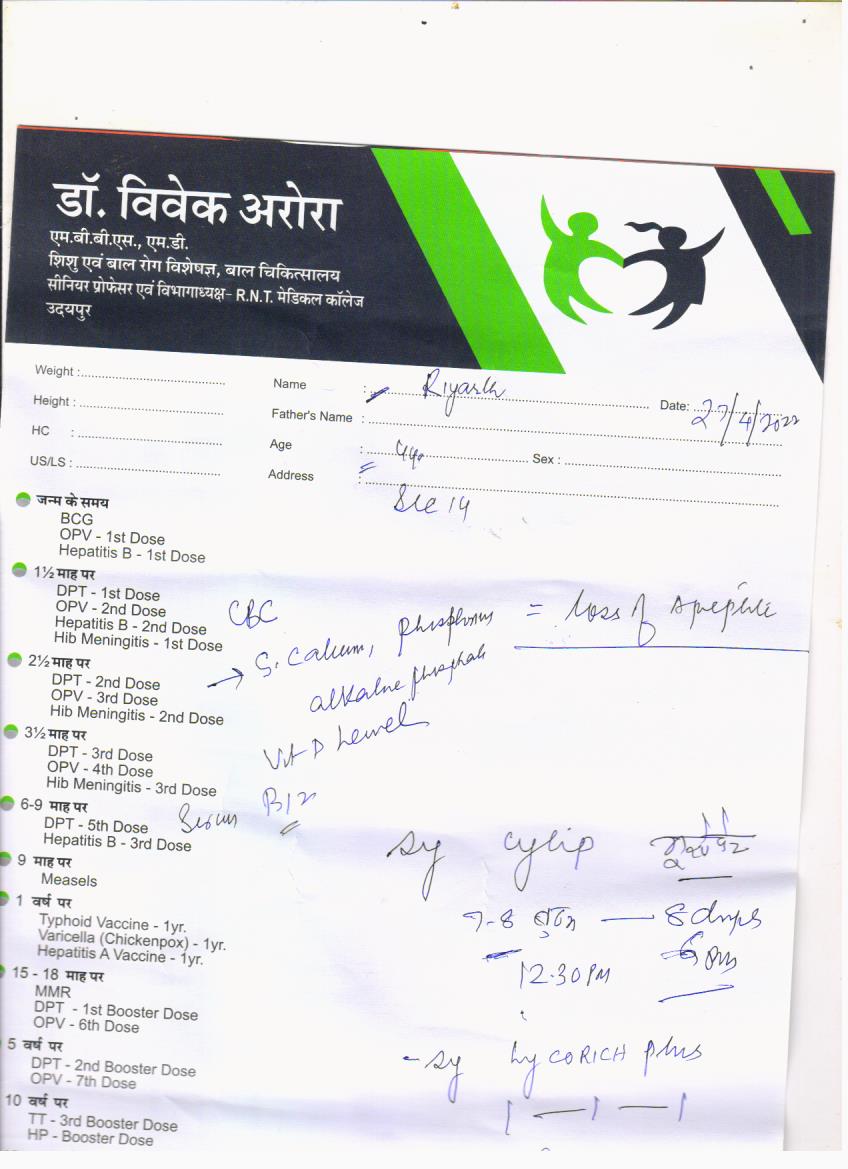 डॉ. विवेक अरोरा
एम.बी.बी.एस., एम.डी.
शिशु एवं बाल रोग विशेषज्ञ, बाल चिकित्सालय
सीनियर प्रोफेसर एवं विभागाध्यक्ष- R.N.T. मेडिकल कॉलेज
उदयपुर
Weight :
Height :
HC :
US/LS :
Name : Riyarth
Date: 27/4/2022
Father's Name :
Age :
Sex :
Address :
Sec 14
जन्म के समय
BCG
OPV - 1st Dose
Hepatitis B - 1st Dose
1½ माह पर
DPT - 1st Dose
OPV - 2nd Dose
Hepatitis B - 2nd Dose
Hib Meningitis - 1st Dose
2½ माह पर
DPT - 2nd Dose
OPV - 3rd Dose
Hib Meningitis - 2nd Dose
3½ माह पर
DPT - 3rd Dose
OPV - 4th Dose
Hib Meningitis - 3rd Dose
6-9 माह पर
DPT - 5th Dose
Hepatitis B - 3rd Dose
9 माह पर
Measels
1 वर्ष पर
Typhoid Vaccine - 1yr.
Varicella (Chickenpox) - 1yr.
Hepatitis A Vaccine - 1yr.
15 - 18 माह पर
MMR
DPT - 1st Booster Dose
OPV - 6th Dose
5 वर्ष पर
DPT - 2nd Booster Dose
OPV - 7th Dose
10 वर्ष पर
TT - 3rd Booster Dose
HP - Booster Dose
CBC
= loss of
S. Calcium, phosphorus
Vit D Level
Serum B12
Sy
7-8 — 8 drops
12.30 PM
- Sy hyCORICH plus
1 — 1 — 1